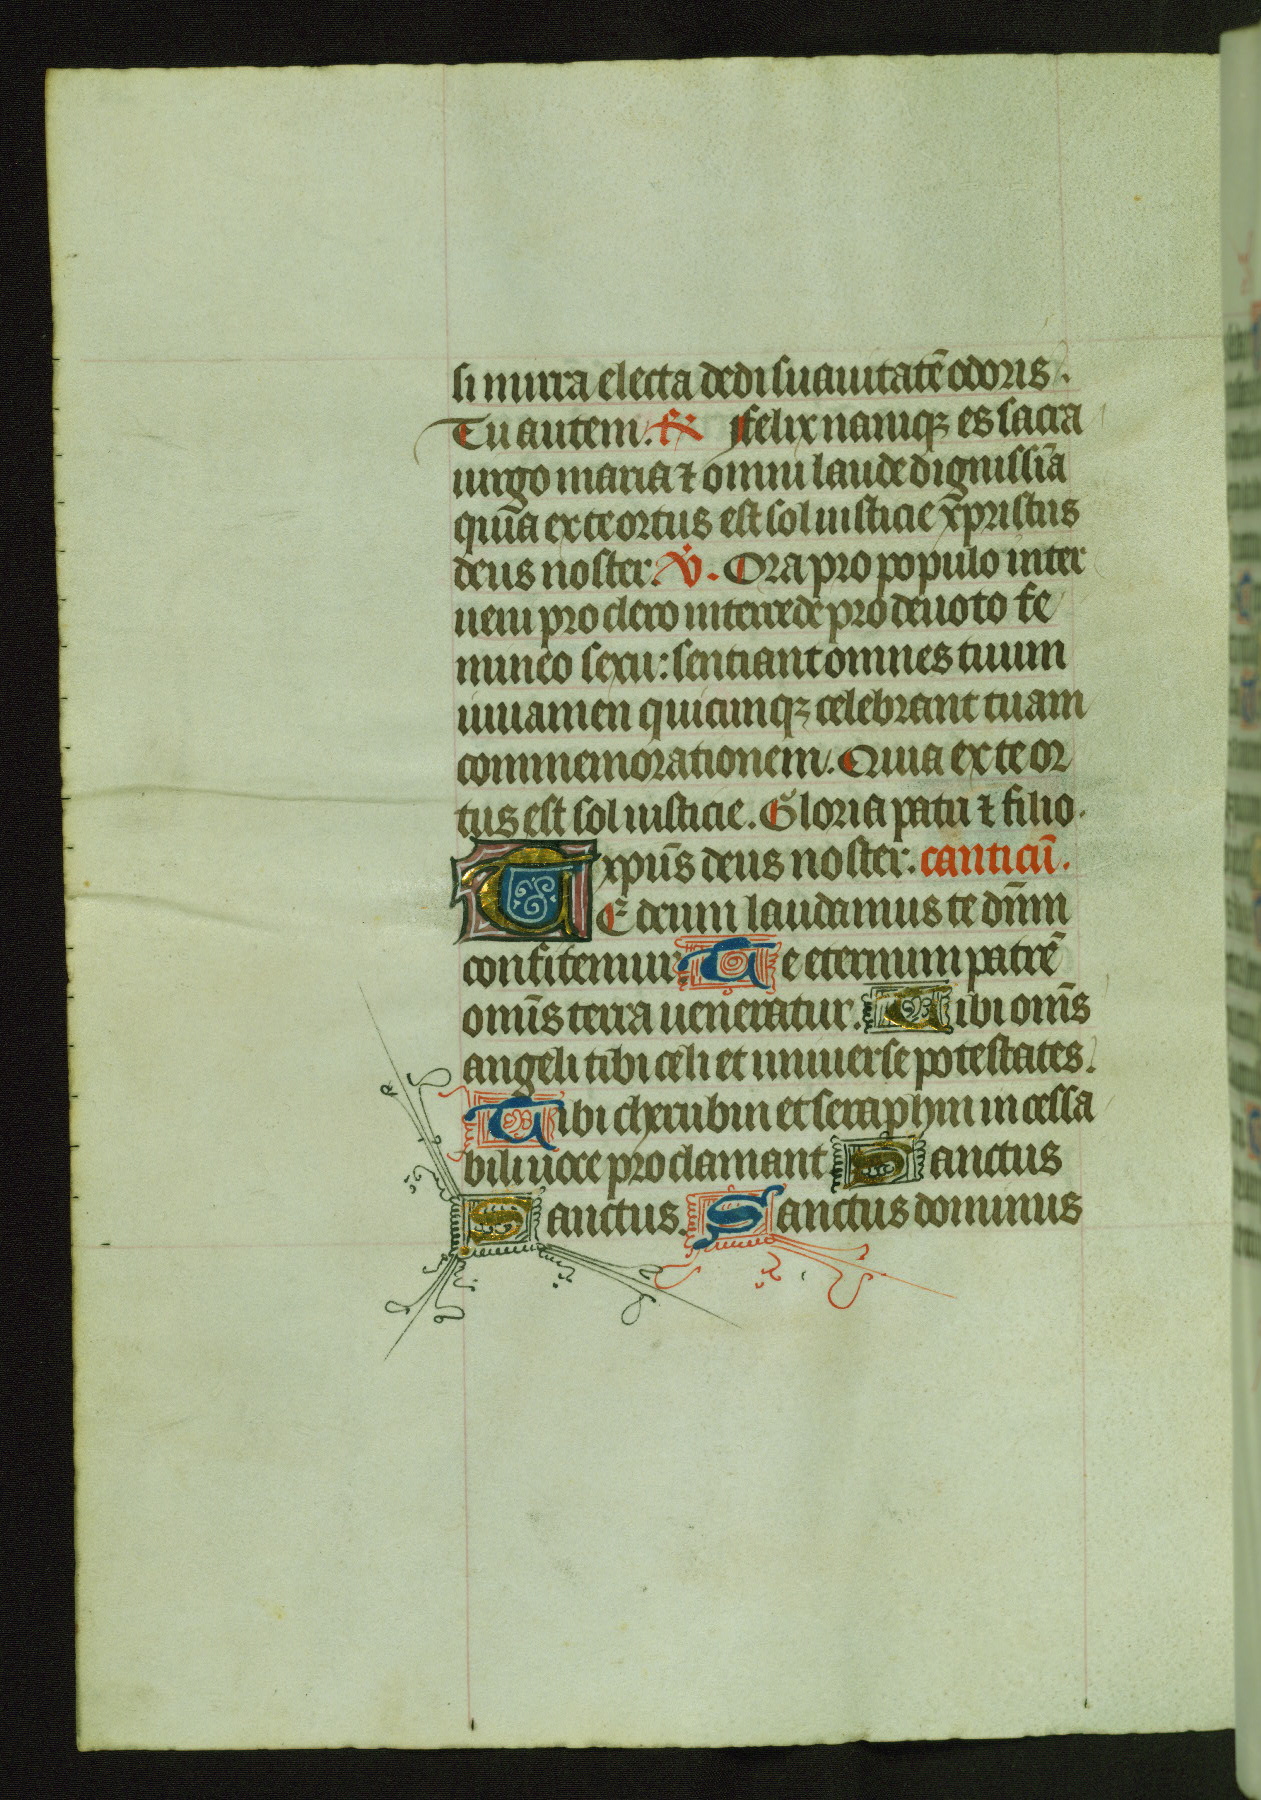 si mirra electa dedi suauitatē odoris.
Tu autem. ℟ Felix namqꝫ es sacra
uirgo maria ⁊ omni laude dignissīa
quīa ex te ortus est sol iusticie x̄pristus
deus noster. ℣. Ora pro populo inter
ueni pro clero intercede pro deuoto fe
mineo sexu: sentiant omnes tuum
iuuamen quicumqꝫ celebrant tuam
commemorationem. Quia ex te or
tus est sol iusticie. Gloria patri ⁊ filio.
xpūs deus noster. canticū.
TE deum laudamus te dn̄m
confitemur Te eternum patrē
omīs terra ueneratur. Tibi omīs
angeli tibi celi et uniuerse potestates.
Tibi cherubin et seraphyn incessa
bili uoce proclamant Sanctus
Sanctus. Sanctus dominus